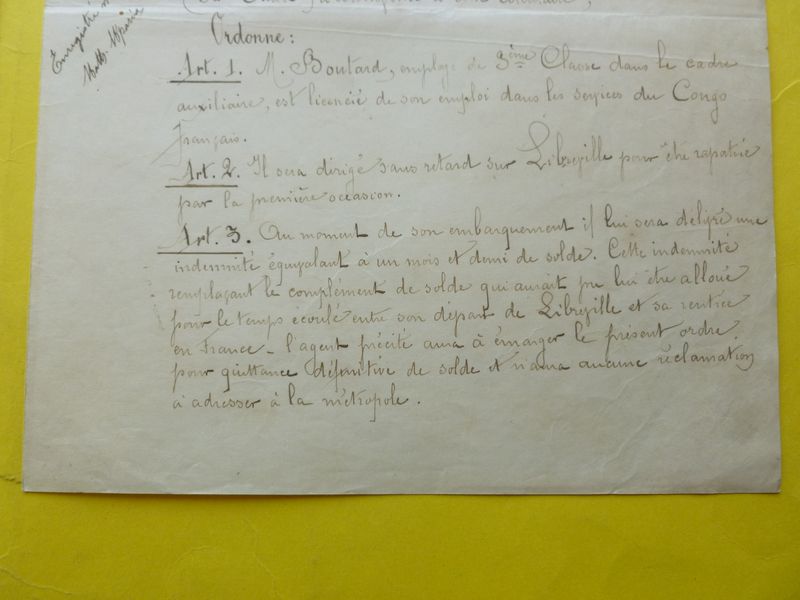 Ordonne :
Art. 1. M. Boutard, employé de 3ème Classe dans le cadre
auxiliaire, est licencié de son emploi dans les services du Congo
français.
Art. 2. Il sera dirigé sans retard sur Libreville pour être rapatrié
par la première occasion.
Art. 3. Au moment de son embarquement il lui sera délivré une
indemnité équivalant à un mois et demi de solde. Cette indemnité
remplaçant le complément de solde qui aurait pu lui être alloué
pour le temps écoulé entre son départ de Libreville et sa rentrée
en France - l'agent précité aura à émarger le présent ordre
pour quittance définitive de solde et n'aura aucune réclamation
à adresser à la métropole.
Enregistré